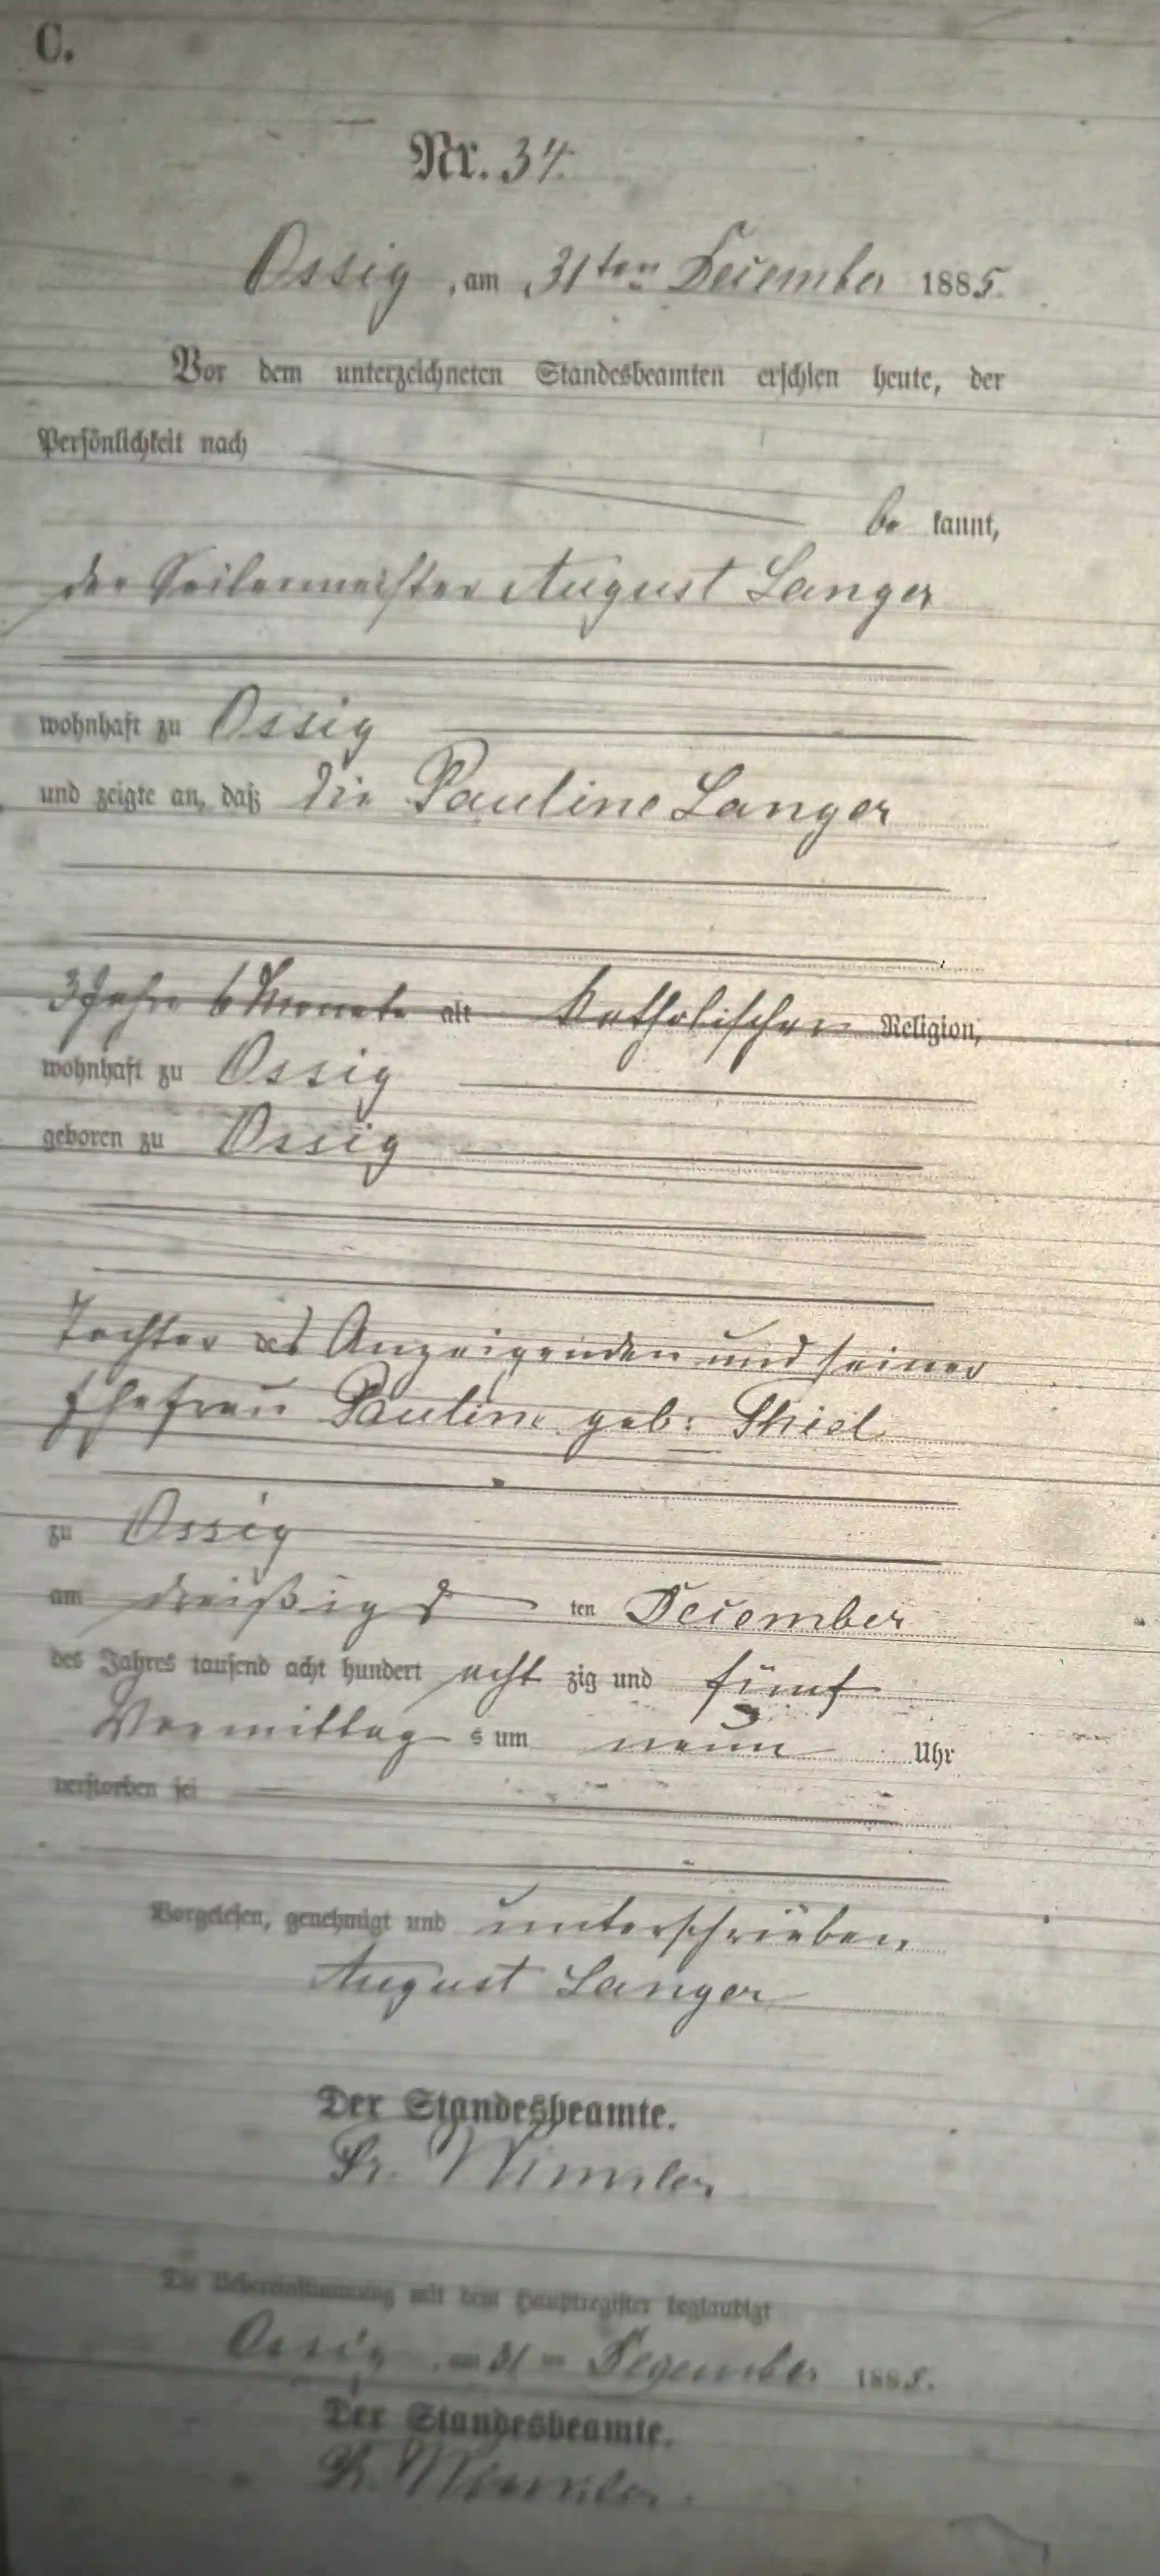 C.
Nr. 34.
Ossig, am 31ten December 1885.
Vor dem unterzeichneten Standesbeamten erschien heute, der
Persönlichkeit nach
be kannt,
der Seilermeister August Langer
wohnhaft zu Ossig
und zeigte an, daß die Pauline Langer
3 Jahr 6 Monate alt katholischer Religion,
wohnhaft zu Ossig
geboren zu Ossig
Tochter des Anzeigenden und seiner
Ehefrau Pauline geb: Thiel
zu Ossig
am dreißigs ten December
des Jahres tausend acht hundert acht zig und fünf
Vormittag s um neun Uhr
verstorben sei
Vorgelesen, genehmigt und unterschrieben
August Langer
Der Standesbeamte.
Die Uebereinstimmung mit dem Hauptregister beglaubigt
Ossig, am 31 ten Dezember 1885.
Der Standesbeamte.